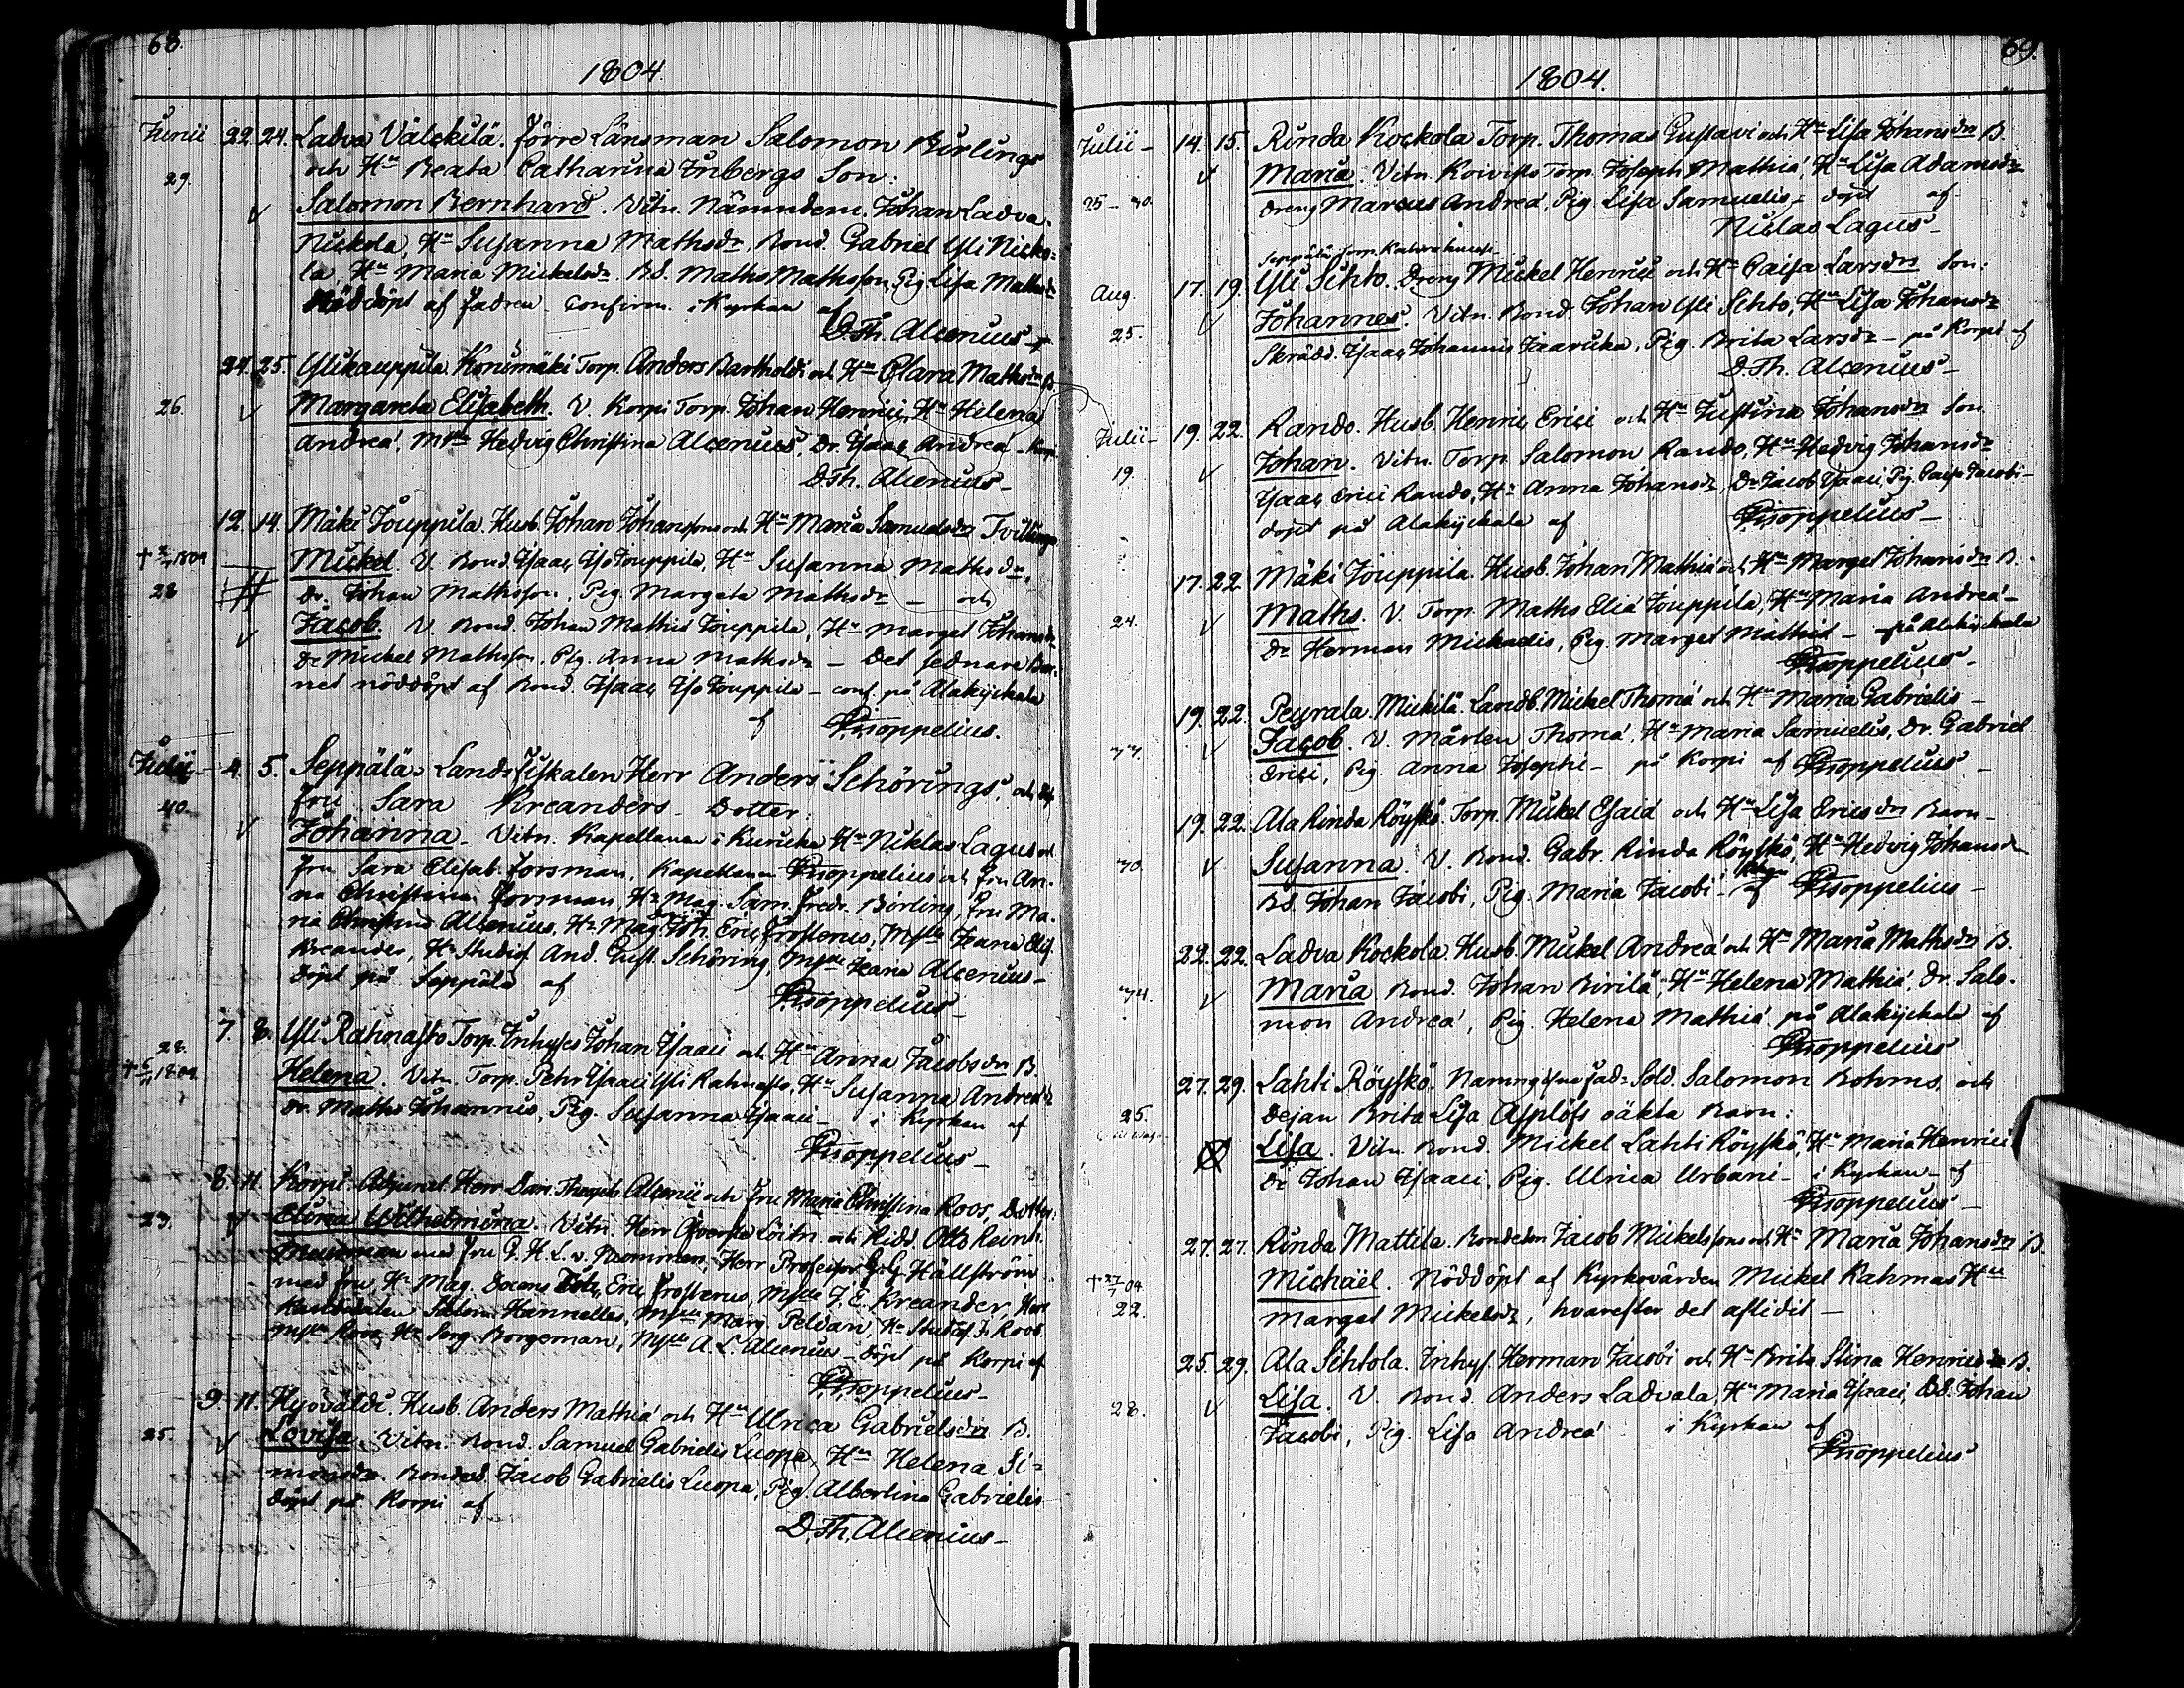 68.
1804.
Junii 22. 24. Ladva Välckilä. Förre Länsman Salomon Birlings
29. och Hu Beata Catharina Inbergs Son:
Salomon Bernhard. Vitn. Nämndem. Johan Ladva
Nickola, Hu Susanna Mathsdr, Bond. Gabriel Yli Nicko-
la, Hu Maria Mickelsdr. Bd. Maths Mathsson, Pig Lisa Mathsdr
Nöddöpt af Fadren Confirm. i Kyrkan af
D. Th. Alcenius
24. 25. Ylikauppila Torp. Anders Bartholdi och Hu Clara Mathsdr B.
26. Margareta Elisabeth. V. Korpi Torp. Johan Henrici, Hu Helena
Andreæ, Mlle Hedvig Christina Alcenius, Dr. Isaac Andreæ - Korpi
D. Th. Alcenius-
12. 14. Mäki Jouppila. Husb. Johan Johanssons och Hu Maria Samuelsdr Tvillingar
1804 Mickel. V. Bond. Isaac Iso Jouppila, Hu Susanna Mathsdr,
28 Dr. Johan Mathsson, Pig. Margeta Mathsdr - och
Jacob. V. Bond. Johan Mathiæ Jouppila, Hu Marget Johansdr
Dr Mickel Mathsson, Pig. Anna Mathsdr - Det sednare Bar-
net nöddöpt af Bond. Isaac Iso Jouppila - conf. på Alakyckala
af Proppelius.
Julii- 4. 5. Seppälä. LandsFiskalen Herr Anders Schörings, och
40. Fru Sara Kreanders Dotter:
Johanna. Vitn. Kapellanen i Kuricka Hr Niklas Lagus och
fru Sara Elisab. Forsman, Kapellanen Proppelius och fru An-
na Christina Forsman, Hr Mag. Sam. Fredr. Börling, fru Ma-
ria Christina Alcenius, Hr Mag. Joh. Eric Frosterus, Mlle Jeana Elis.
Kreander, Hr Studios. And. Gust. Schöring, Mlle Maria Alcenius-
döpt på Seppälä af
Proppelius-
7. 8. Yli Rahnasto Torp. Inhyses Johan Isaaci och Hu Anna Jacobsdr B.
28.
1804 Helena. Vitn. Torp. Petr Isaaci Yli Rahnasto, Hu Susanna Andreædr
Dr. Maths Johannis, Pig. Susanna Isaaci- i Kyrkan af
Proppelius-
8. 11. Korpi. Adjunct. Herr Dan. Alcenii och fru Maria Christina Roos. Dotter:
23. Wilhelmina. Vitn. Herr Öfverste Löitn. och Ridd. Otto Reinh.
med fru G. H. L. v. Herr Professor G. G. Hällström
med fru Hr Mag. Docens Joh. Eric Frosterus, Mlle J. E. Kreander, Herr
Hannelles, Mlle Marg. Peldan, Hr Studios. J. Roos.
Mlle Roos Hr Serg. Borgeman, Mlle A. L. Alcenius - döpt på Korpi af
Proppelius-
9. 11. Hyövälti. Husb. Anders Mathiæ och Hu Ulrica Gabrielsdr B.
25. Lovisa. Vitn. Bond. Samuel Gabrielis Luopa, Hu Helena Si-
monsdr. Bondes. Jacob Gabrielis Luopa, Pig. Albertina Gabrielis
döpt på Korpi af
D. Th. Alcenius-
69.
1804.
Julii- 14. 15. Rinda Kockola Torp. Thomas Gustavi och Hu Lisa Johansdr B.
Maria. Vitn. Koivisto Torp. Joseph Mathiæ, Hu Lisa Adamsdr
25 - 30. Dreng Marcus Andreæ, Pig Lisa Samuelis - döpt af
Niclas Lagus-
Seppälä Torp.
Aug. 17. 19. Yli Sihto. Dreng Mickel Henrici och Hu Caisa Larsdr Son:
Johannes. Vitn. Bond. Johan Yli Sihto, Hu Lisa Johansdr
25. Skrädd. Isaac Johannis Jaaricka, Pig. Brita Larsdr - på Korpi af
D. Th. Alcenius-
Julii- 19. 22. Rando. Husb. Henric Erici och Hu Justina Johansdr Son
19. Johan. Vitn. Torp. Salomon Rando, Hu Hedvig Johansdr
Isaac Erici Rando, Hu Anna Johansdr, Dr Jacob Isaaci, Pig. Caisa Jacobi-
döpt på Alakyckala af Proppelius-
17. 22. Mäki Jouppila. Husb. Johan Mathiæ och Hu Marget Johansdr B.
24. Maths. V. Torp. Maths Eliæ Jouppila, Hu Maria Andreæ-
Dr Herman Michaelis, Pig. Marget Mathiæ - på Alakyckala
Proppelius-
19. 22. Peurala. Mickilä. Landb. Mickel Thomæ och Hu Maria Gabrielis -
37. Jacob. V. Mårten Thomæ, Hu Maria Samuelis, Dr. Gabriel
Erici, Pig. Anna Josephi - på Korpi af Proppelius-
19. 22. Ala Rinda Röyskö. Torp. Mickel Esaiæ och Hu Lisa Ericsdr Barn-
30. Susanna. V. Bond. Gabr. Rinda Röyskö, Hu Hedvig Johansdr
Bd. Johan Jacobi, Pig. Maria Jacobi- af Proppelius-
22. 22. Ladva Kockola. Husb. Mickel Andreæ och Hu Maria Mathsdr B.
34. Maria. Bond. Johan Birilä, Hu Helena Mathiæ, Dr. Salo-
mon Andreæ, Pig. Helena Mathiæ på Alakyckala af
Proppelius
27. 29. Lahti Röyskö. Sold. Salomon Bohms, och
25. Dejan Brita Lisa Asplöfs oäkta Barn:
Lisa. Vitn. Bond. Mickel Lahti Röyskö, Hu Maria Henrici
Dr Johan Isaaci, Pig. Ulrica Urbani- i Kyrkan- af
Proppelius-
27. 27. Rinda Mattila. Bondeson Jacob Mickelssons och Hu Maria Johansdr B.
04 Michaël. Nöddöpt af Kyrkovärden Mickel Rahnas Hu
22. Marget Mickelsdr, hvarefter det aflidit-
25. 29. Ala Sihtola. Inhys. Herman Jacobi och Hu Brita Stina Henricsdr B.
28. Lisa. V. Bond. Anders Ladvala, Hu Maria Isaaci, Bd. Johan
Jacobi, Pig. Lisa Andreæ i Kyrkan af
Proppelius